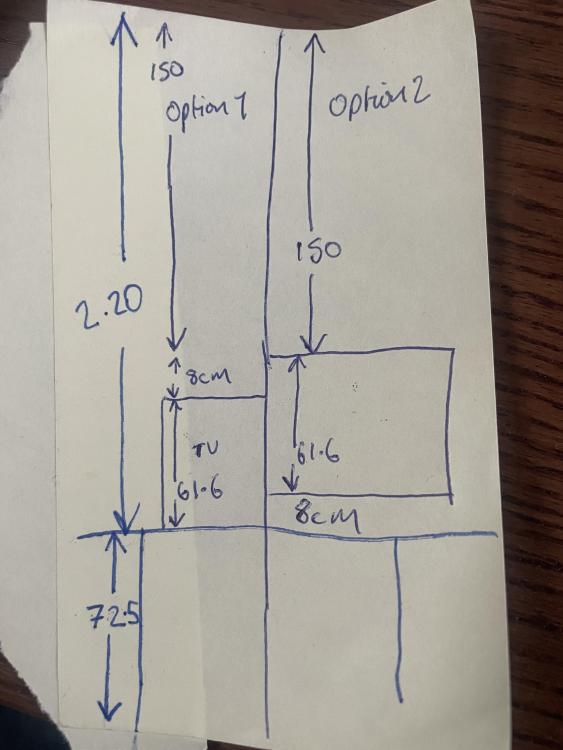 150
Option 1
Option 2
150
2.20
8cm
TV
61.6
61.6
8cm
72.5